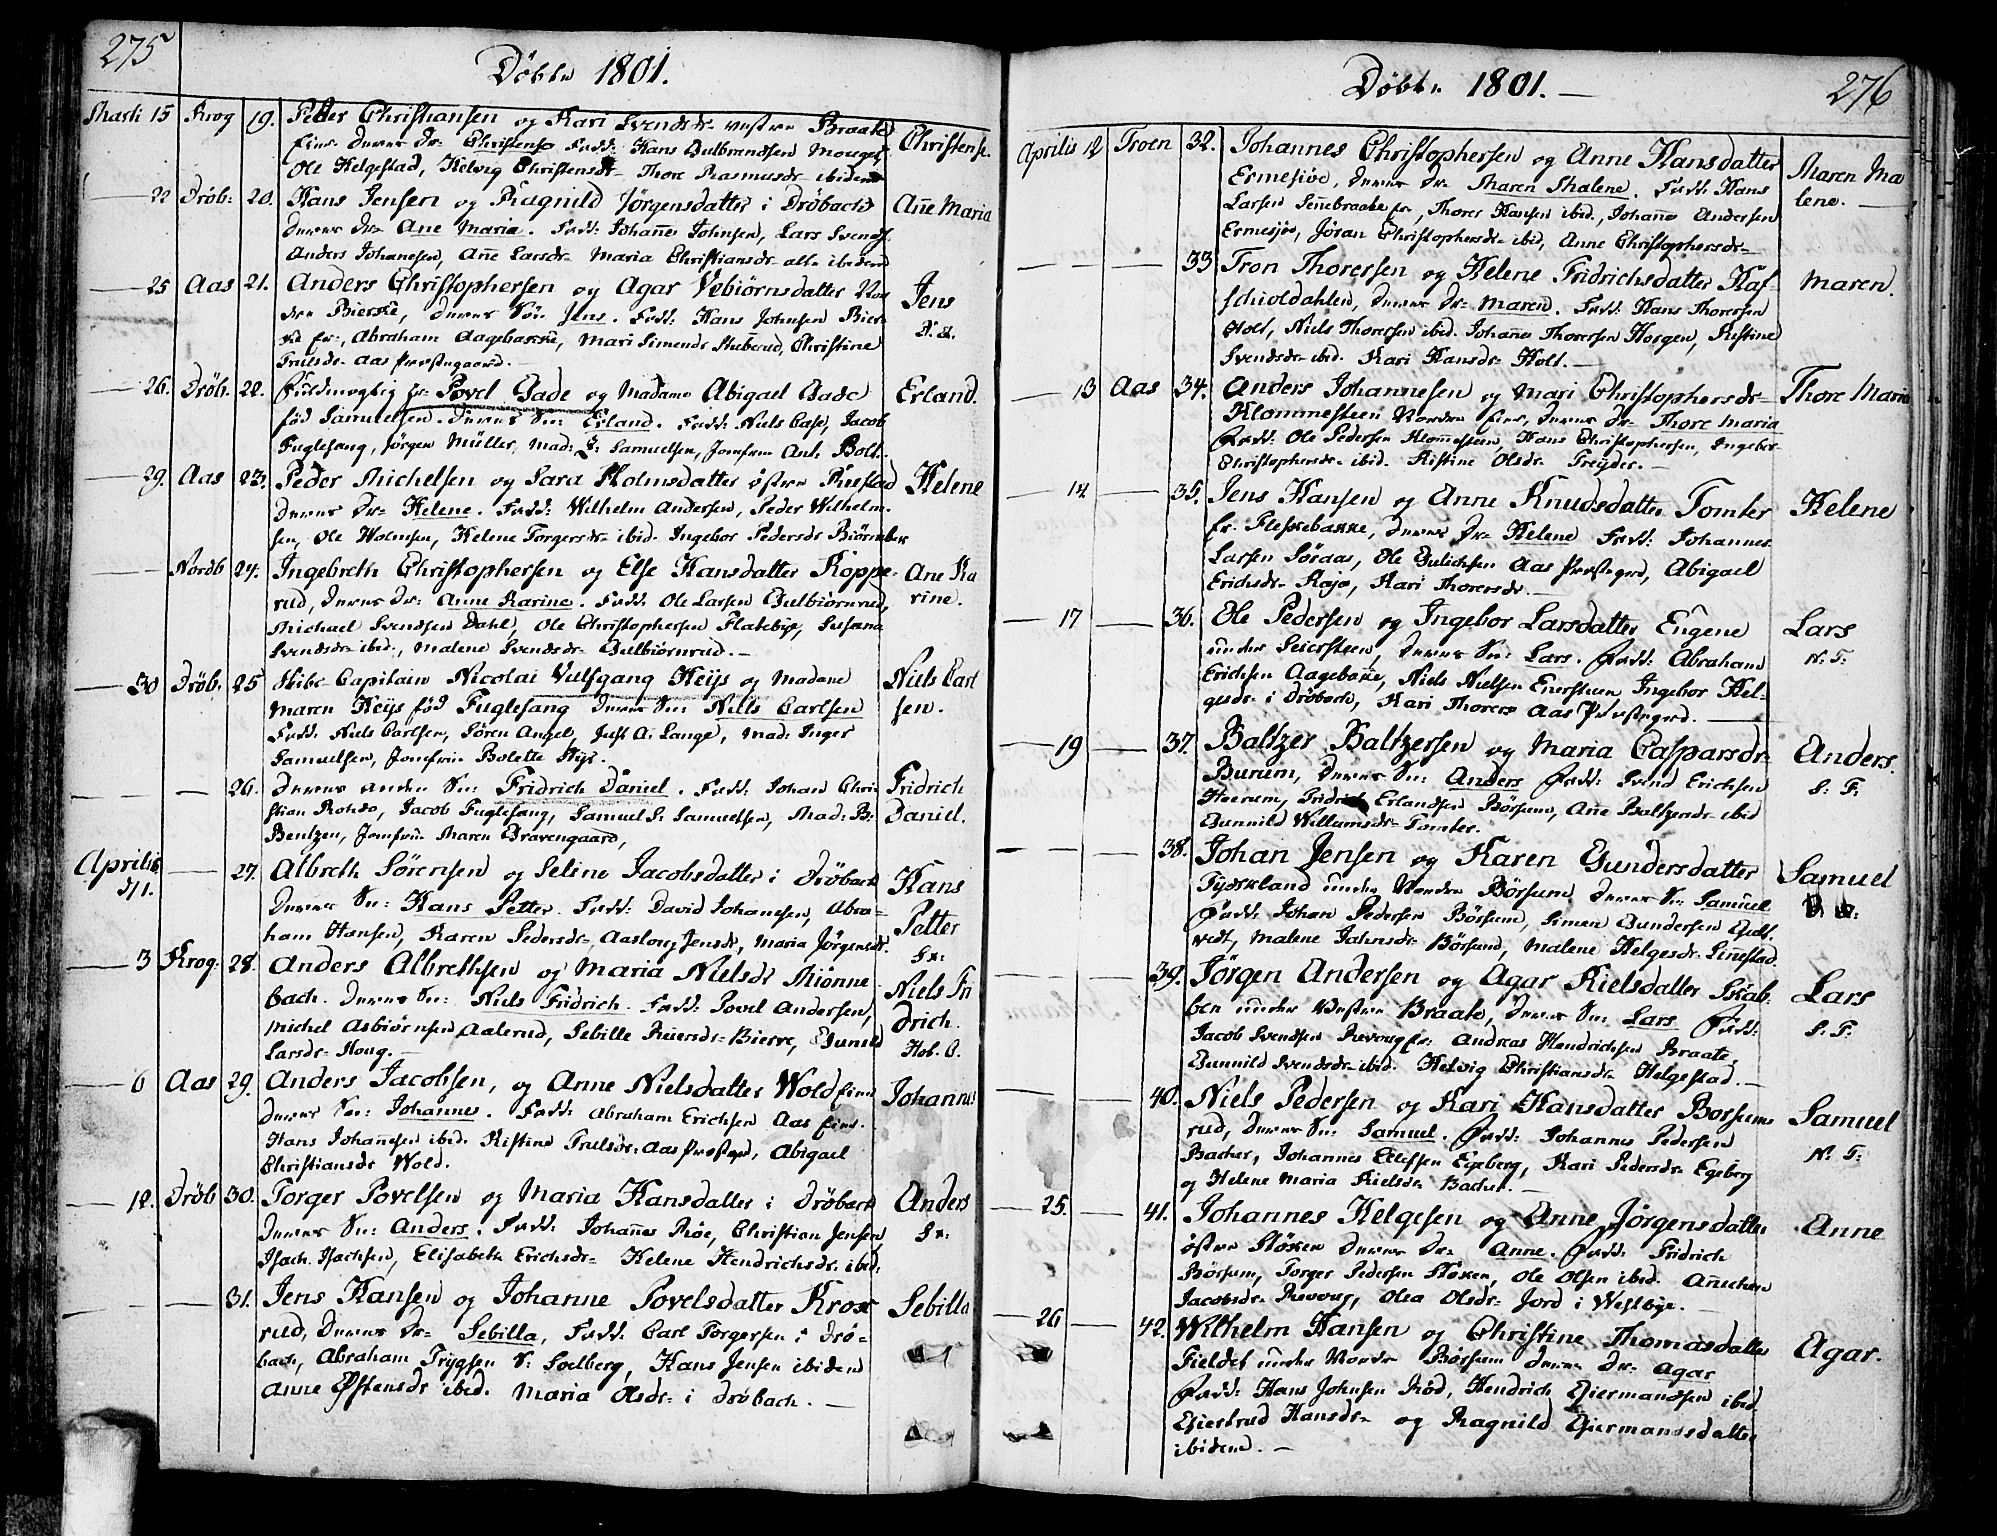 275
Döbte 1801.
Martii 15 Krog 19. Peder Christiansen og Kari Svendsdr vestre Braate
Eier deres Dr Christense Fadd: Hans Gulbrandsen
Ole Helgestad, Helvig Christensdr Thore Rasmusdr ibidem
Christense.
22 Dröb: 20. Hans Jensen og Ragnild Jörgensdatter i Dröbach
deres Dr Ane Maria. Fadd: Johañes Johnsen, Lars Svends.
Anders Johanesen, Añe Larsdr Maria Christiansdr alle ibidem
Añe Maria
25 Aas 21. Anders Christophersen og Agar Vebiörnsdatter
Bierske, deres Sön Jens. Fadd: Hans Johnsen Bier
Abraham Aagebakke, Mari Simensdr Stuberud, Christine
Trulsdr Aas Præstegaard.
Jens
26. Dröb. 22. Fuldmægtig hr Povel Gade og Madame Abigael Gade
föd Samuelsen. Deres Sn: Erland. Fadd: Niels Case, Jacob
Fuglesang, Jörgen Müller, Mad: Samuelsen, Jomfrue Ant: Bolt.
Erland.
29. Aas 23. Peder Michelsen og Sara Holmsdatter östre Rustad
deres Dr Helene. Fadd: Wilhelm Andersen, Peder Wilhelm
sen, Ole Holmsen, Helene Torgersdr ibid. Ingebor Pedersdr Biörnebek
Helene
Nordb 24. Ingebreth Christophersen og Else Hansdatter Röppe
rud, deres Dr: Anne Karine. Fadd: Ole Larsen Gulbiörnrud,
Michael Svendsen Dahl, Ole Christophersen Flatebye, Susana
Svendsdr ibid., Malene Svendsdr Gulbiörnrud.
Ane Ka
rine.
30 Dröb. 25 Skibs-Capitain Nicolai Vulfgang Heijs og Madame
Maren Heijs föd Fuglesang deres Sn: Niels Carlsen
Fadd: Niels Carlsen, Sören Angel, Just A. Lange, Mad: Inger
Samuelsen, Jomfrue Bolette Hijs.
Niels Carl
sen.
26. Deres anden Sn: Fridrich Daniel. Fadd: Johan Chri
stian Rohde, Jacob Fuglesang, Samuel S. Samuelsen, Mad: B:
Bentzen, Jomfrue Maren Gravengaard,
Fridrich
Daniel.
Aprilis 27. Albreth Sörensen og Seline Jacobsdatter i Dröbach
deres Sn: Hans Petter Fadd: David Johanesen, Abra
ham Hansen, Karen Pedersdr, Aaslow Jensdr, Maria Jörgensdr
Hans
Petter
3 Krog. 28. Anders Albrethsen og Maria Nielsdr Miönne
bach. Deres Sn: Niels Fridrich. Fadd: Povel Andersen,
Michel Asbiörnsen Aalerud, Sebille Bierre, Gunild
Larsdr Houg.
Niels Fri
drich.
6 Aas 29. Anders Jacobsen, og Anne Nielsdatter Wold eier
deres Sn: Johannes. Fadd: Abraham Erichsen Aas eier.
Hans Johañesen ibid. Kistine Trulsdr Aas Præstegd, Abigael
Christiansdr Wold.
Johannes
12. Dröb 30. Torger Povelsen og Maria Hansdatter i Dröbach
deres Sn: Anders. Fadd: Johañes Röe, Christian Jensen
Isach Isachsen, Elisabeth Erichsdr Helene Hendrichsdr ibid:
Anders
31. Jens Hansen og Johanne Povelsdatter Krox
rud, deres Dr Sebilla, Fadd: Carl Torgersen i Drö
bach, Abraham Trygsen Solberg, Hans Jensen ibidem
Anne Östensdr ibid. Maria Olsdr i Dröbach.
Sebilla
276
Döbte 1801.
Aprilis 12 Troen 32. Johannes Christophersen og Anne Hansdatter
Ermesiöe, deres Dr Maren Malene. Fadd: Hans
Larsen Señebraate, Thorer Hansen ibid., Johañes Andersen
Ermesjöe, Jöran Christophersdr ibid, Anne Christophersdr
Maren Ma
lene.
33 Tron Thoresen og Helene Fridrichsdatter Haf
schioldahlen, deres Dr Maren. Fadd: Hans Thoresen
Holt, Niels Thoresen ibid. Johañes Thoresen Horgen, Kistine
Svendsdr ibid. Kari Hansdr Holt.
Maren.
13 Aas 34. Anders Johannesen og Mari Christophersdr
Klommesteen Nordre eier, deres Dr Thore Maria
Fadd: Ole Pedersen Klommesteen, Hans Christophersen, Ingebor
Christophersdr ibid. Kistine Olsdr Treyder.
Thore Maria
14 35. Jens Hansen og Anne Knudsdatter Tomter
Fleskebakke, deres Dr Helene Fadd: Johannes
Larsen Söraas, Ole Gulichsen Aas Præstegrd, Abigael
Erichsdr Kajo, Kari Thoresdr.
Helene
17 36. Ole Pedersen og Ingebor Larsdatter Engene
under Seiersteen, deres Sn: Lars. Fadd: Abraham
Erichsen Aagebakke, Niels Nielsen Ingebor Hel
gesdr i Dröbach, Kari Thoresdr Aas Præstegrd.
Lars
N. T:
19 37. Baltzer Baltzersen og Maria Caspersdr
Burum, deres Sn: Anders Fadd: Svend Erichsen
Haerum, Fridrich Erlandsen Börsum, Añe Baltzersdr ibid
Gunnild Willumsdr Tomter.
Anders.
S. F:
38. Johan Jensen og Karen Gundersdatter
Tydskland under Nordre Börsum deres Sn: Samuel
Fadd: Johan Pedersen Börsum, Simen Gundersen
vedt, Malene Johnsdr Börsum, Malene Helgesdr Liñestad.
Samuel
39. Jörgen Andersen og Agar Nielsdatter Skab
ben under Vestre Braate, deres Sn: Lars Fadd:
Jacob Svendsen Revoug Andreas Hendrichsen Braate,
Gunnild Svendsdr ibid. Helvig Christiansdr Helgestad.
Lars
S. F:
40. Niels Pedersen og Kari Hansdatter Borsum
rud, deres Sn: Samuel. Fadd: Johannes Pedersen
Bacher, Johannes Ellefsen Egeberg, Kari Pedersdr Egeberg
og Helene Maria Nielsdr Bacher.
Samuel
N. T:
25. 41. Johannes Helgesen og Anne Jörgensdatter
östre Flöxen deres Dr Anne. Fadd: Fridrich
Börsum, Torger Pedersen Flöxen, Ole Olsen ibid. Añichen
Jacobsdr Revoug, Olea Olsdr Jord i Westbye.
Anne
26 42. Wilhelm Hansen og Christine Thomasdatter
Fieldet under Nordre Börsum deres Dr Agar
Fadd: Hans Johnsen Röd, Hendrich Giermandsen ibid.
Giertrud Hansdr og Ragnild Giermandsdatter
ibidem.
Agar.